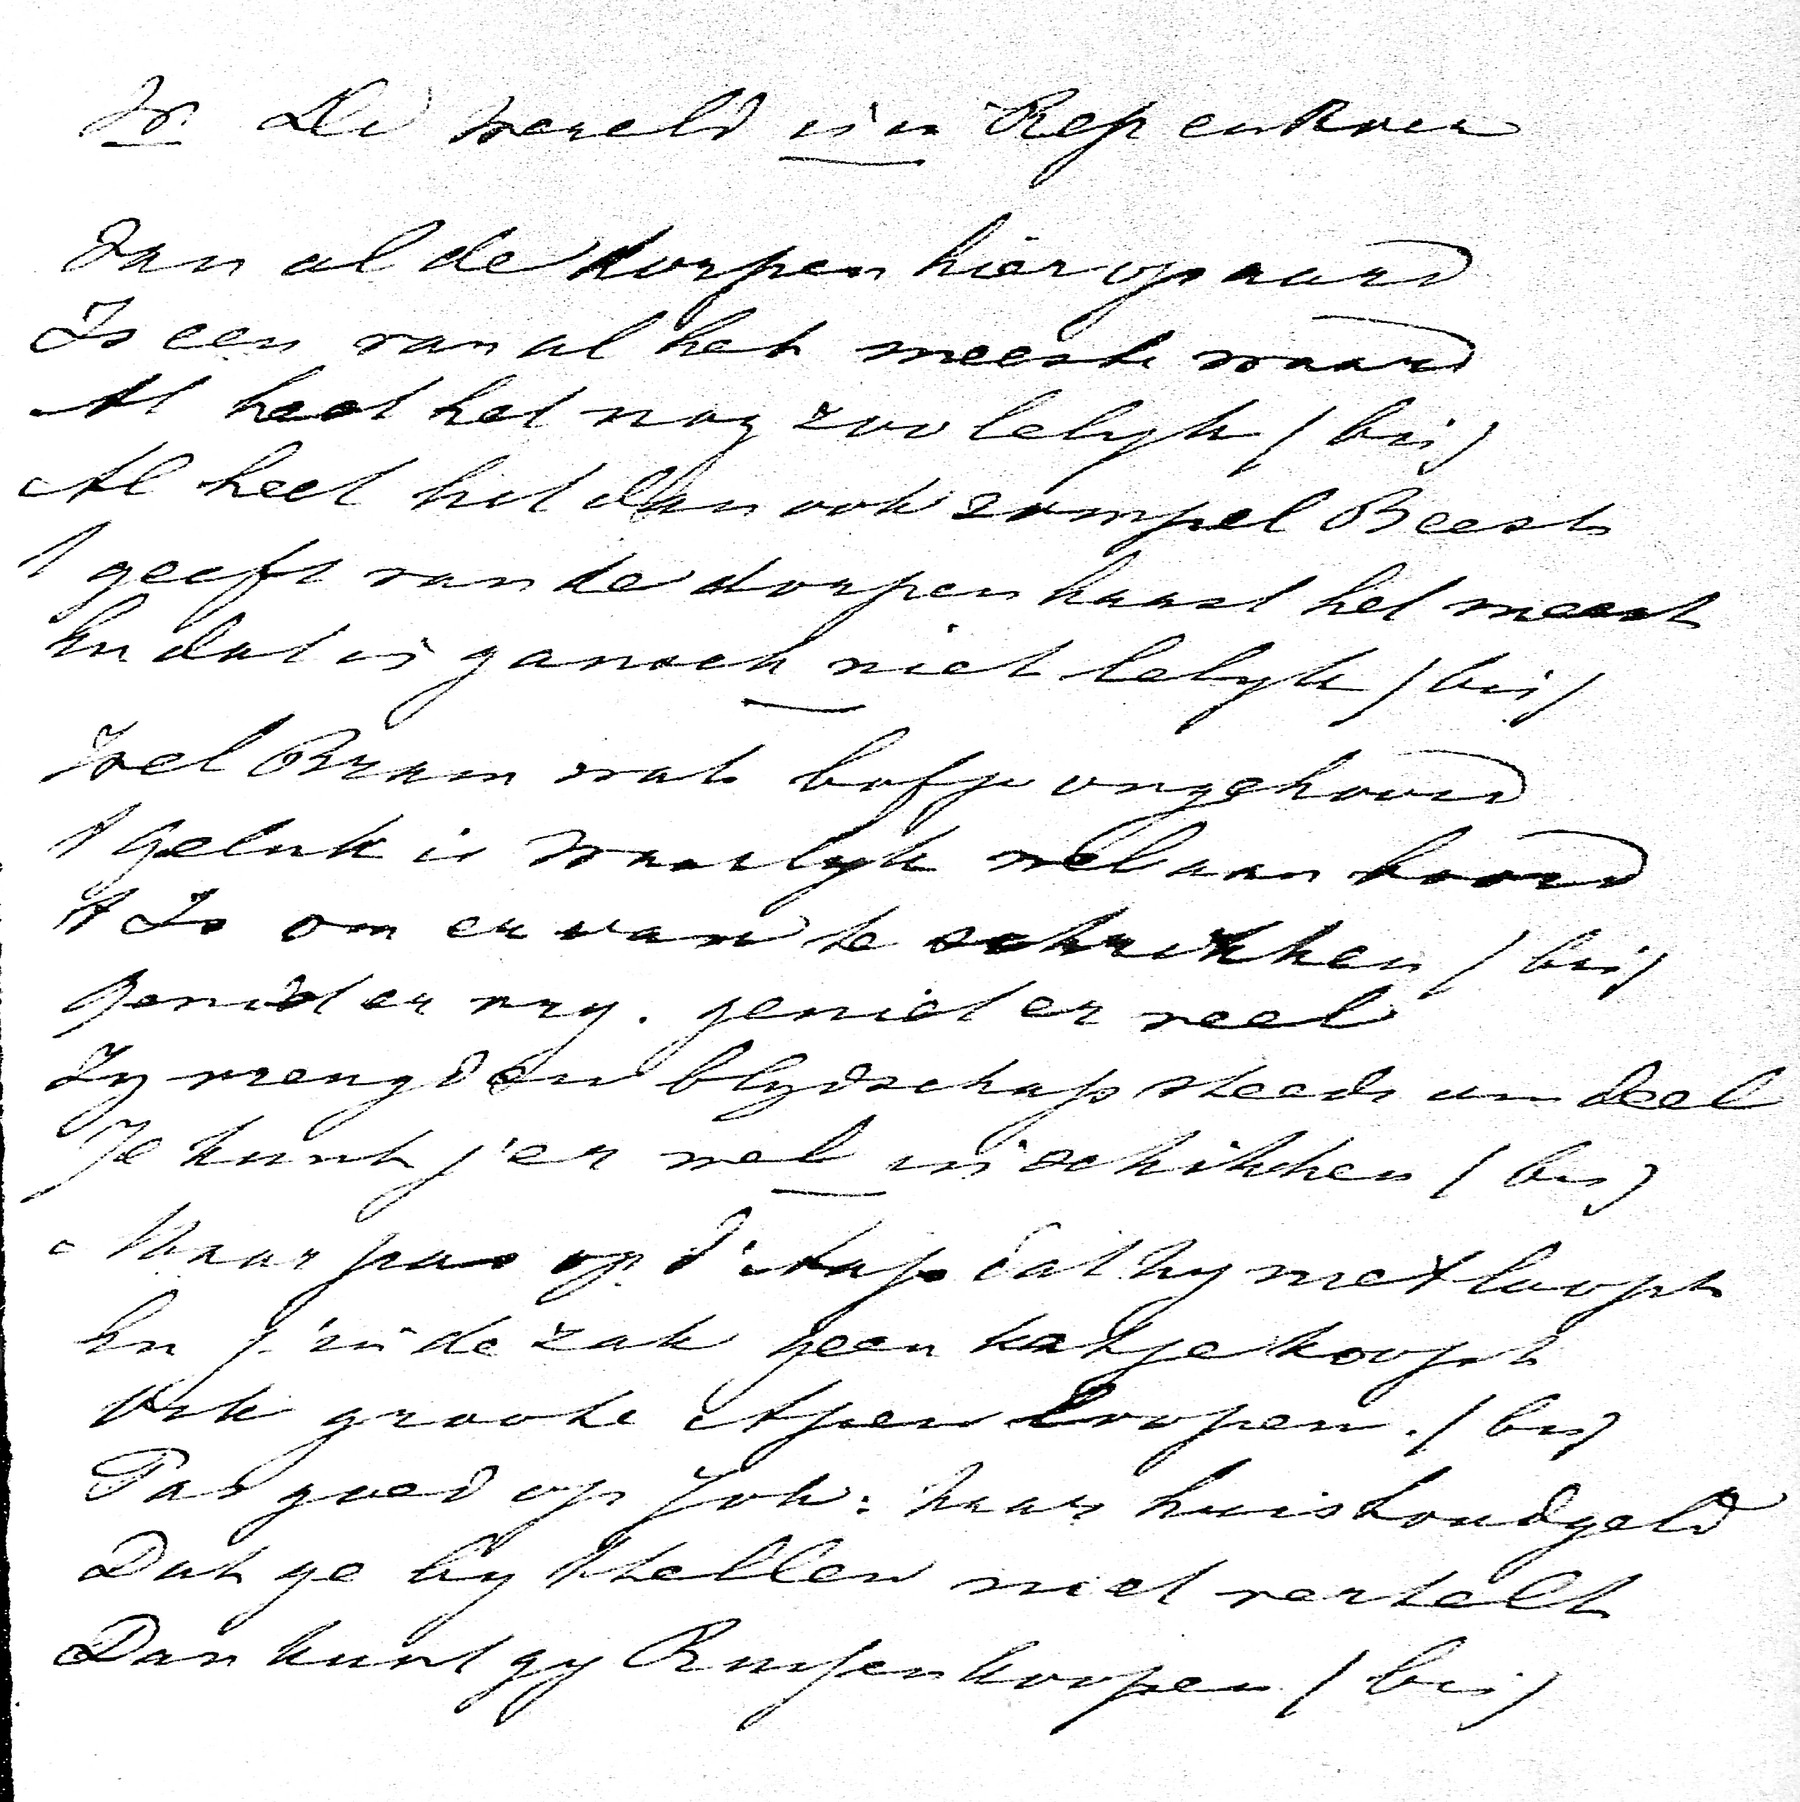 W. De Wereld is in Rep en Roer
Van al de dorpen hier op aard
Is een van al het meeste waard
Al heet het nog zoo lelyk (bis)
Al heet het dan ook rompel Beest
't geeft van de dorpen haast het meest
En dat is gansch niet lelyk (bis)
Wel Bram wat bof je ongehoord
't geluk is waarlyk wel aan boord
't Is om er van te schrikken (bis)
Geniet er vry. geniet er veel
Zy vreugd en blydschap steeds uw deel
Je kunt j'er wel in schikken (bis)
Maar pas op d'Aap dat hy niet loopt
En j' in de zak geen katje koopt
Ook groote Apen loopen. (bis)
Pas goed op Joh: haar huishoudgeld
Dat ge by 't tellen niet vertelt
Dan kunt gy Rupen koopen (bis)